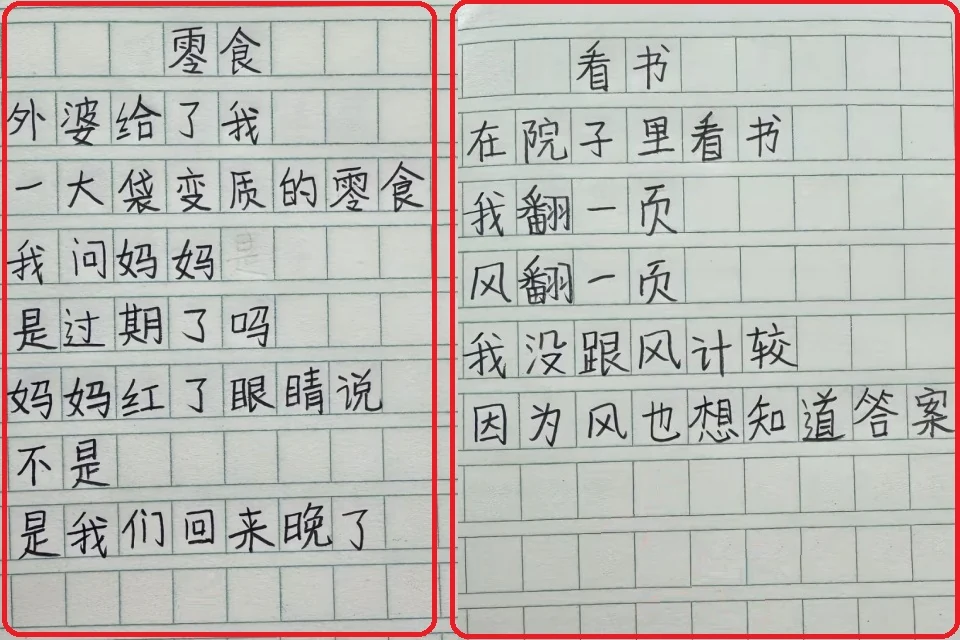 零食
外婆给了我
一大袋变质的零食
我问妈妈
是过期了吗
妈妈红了眼睛说
不是
是我们回来晚了
看书
在院子里看书
我翻一页
风翻一页
我没跟风计较
因为风也想知道答案